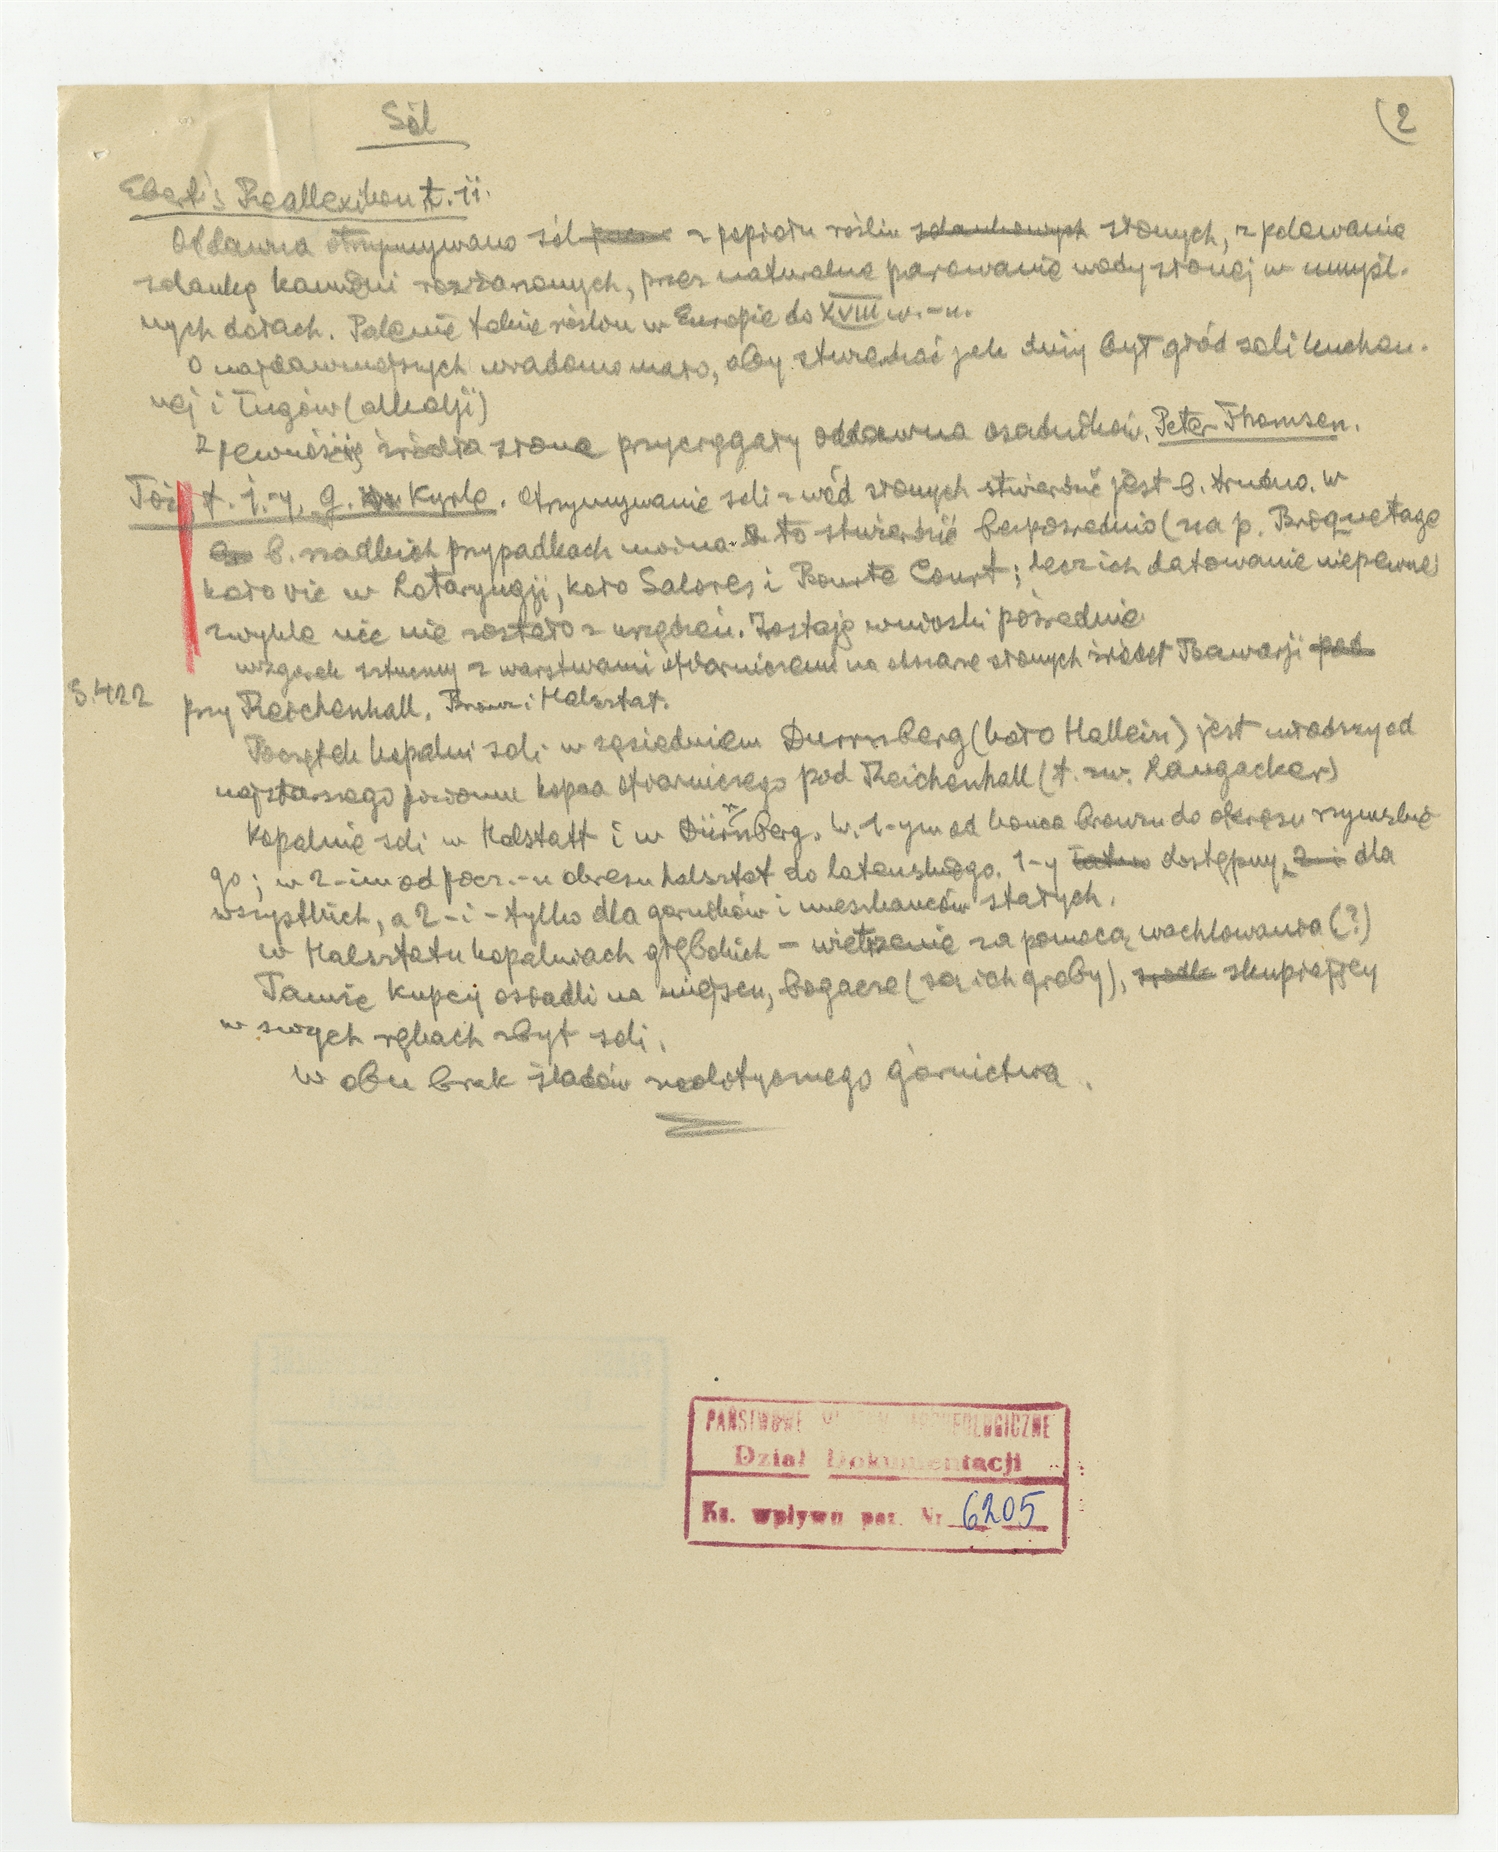 Sól
2
Ebert's Reallexikon t. ii.
Oddawna otrzymywano sól z popiołu roślin słonych, z polewania
solanką kamieni rozżarzonych, przez naturalne parowanie wody słonej w umyśl-
nych dołach. Palenie takie roślin w Europie do XVIII w.-u.
O najdawniejszych wiadomo mało, aby stwierdzić jak duży był głód soli kuchen-
nej i ługów (alkalji)
Z pewnością źródła słone przyciągały oddawna osadników. Peter Thomsen.
Toż t. j.-y, G. Kyrle. Otrzymywanie soli z wód słonych stwierdzić jest b. trudno. W
b. rzadkich przypadkach można to stwierdzić bezpośrednio (na p. Briquetage
koło Vic w Lotaryngji, koło Salores i Bourte Court; lecz ich datowanie niepewne
zwykle nic nie zostało z urządzeń. Zostają wnioski pośrednie
wzgórek sztuczny z warstwami otwarniczemi na obszarze słonych źródeł Bawarji pod
S. 422
przy Reichenhall. Bronz i Halsztat.
Początek kopalni soli w sąsiedniem Durrnberg (koło Hallein) jest młodszy od
najstarszego poziomu kopca otwarniczego pod Reichenhall (t. zw. Langacker)
Kopalnie soli w Halstatt i w Dürnberg. W 1-ym od końca bronzu do okresu rzymskie-
go; w 2-im od pocz.-u okresu halsztat do lateńskiego. 1-y dostępny dla
wszystkich, a 2-i - tylko dla górników i mieszkańców stałych.
W Halsztatu kopalniach głębokich - wietrzenie za pomocą wachlowania (?)
Tamże kupcy osiadli na miejscu, bogacze (są ich groby), skupiający
w swych rękach zbyt soli.
W obu brak śladów neolitycznego górnictwa.
PAŃSTWOWE MUZEUM ARCHEOLOGICZNE
Dział Dokumentacji
Ks. wpływu poz. Nr 6205